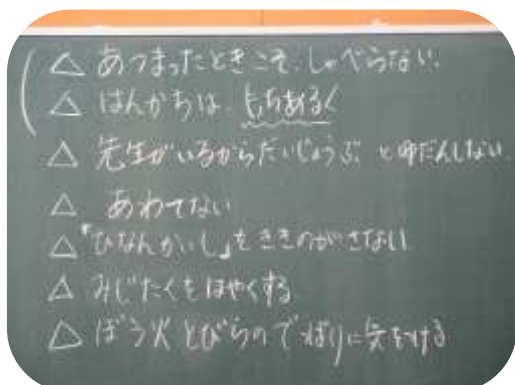 △ あつまったときこそ、しゃべらない。
△ はんかちは、もちあるく
△ 先生がいるからだいじょうぶ と ゆだんしない
△ あわてない
△「ひなんかいし」をききのがさない
△ みじたくをはやくする
△ ぼう火とびらのでっぱりに気をつける